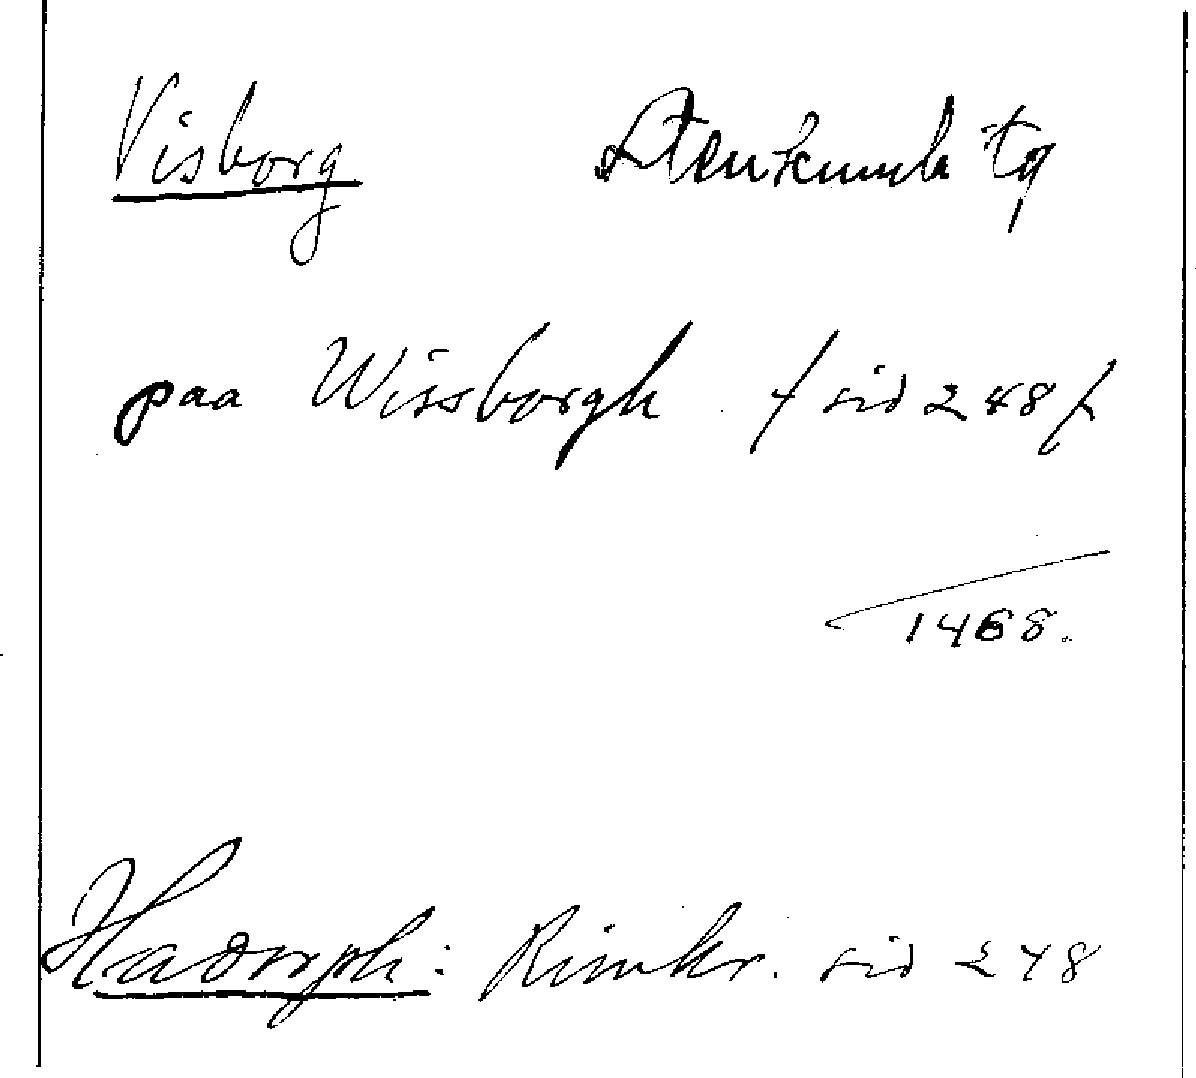 Visborg Stenkumla tg
paa Wissborgh. /sid 248/.
1468.
Hadorph: Rimkr. sid 248